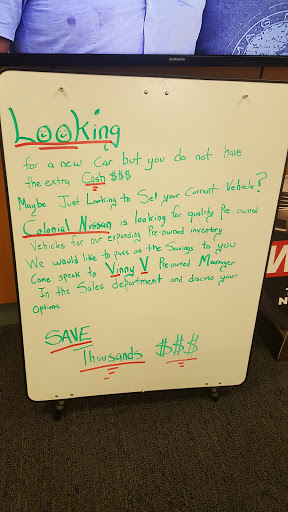 SAMSUNG
Looking
for a new car but you do not have
the extra Cash $$$
Maybe Just Looking to Sell your Current Vehicle?
Colonial Nissan is looking for quality Pre-owned
Vehicles for our expanding Pre-owned inventory
We would like to pass on the Savings to you
Come speak to Vinny V Pre-owned Manager
In the Sales department and discuss your
Options.
SAVE
Thousands $$$